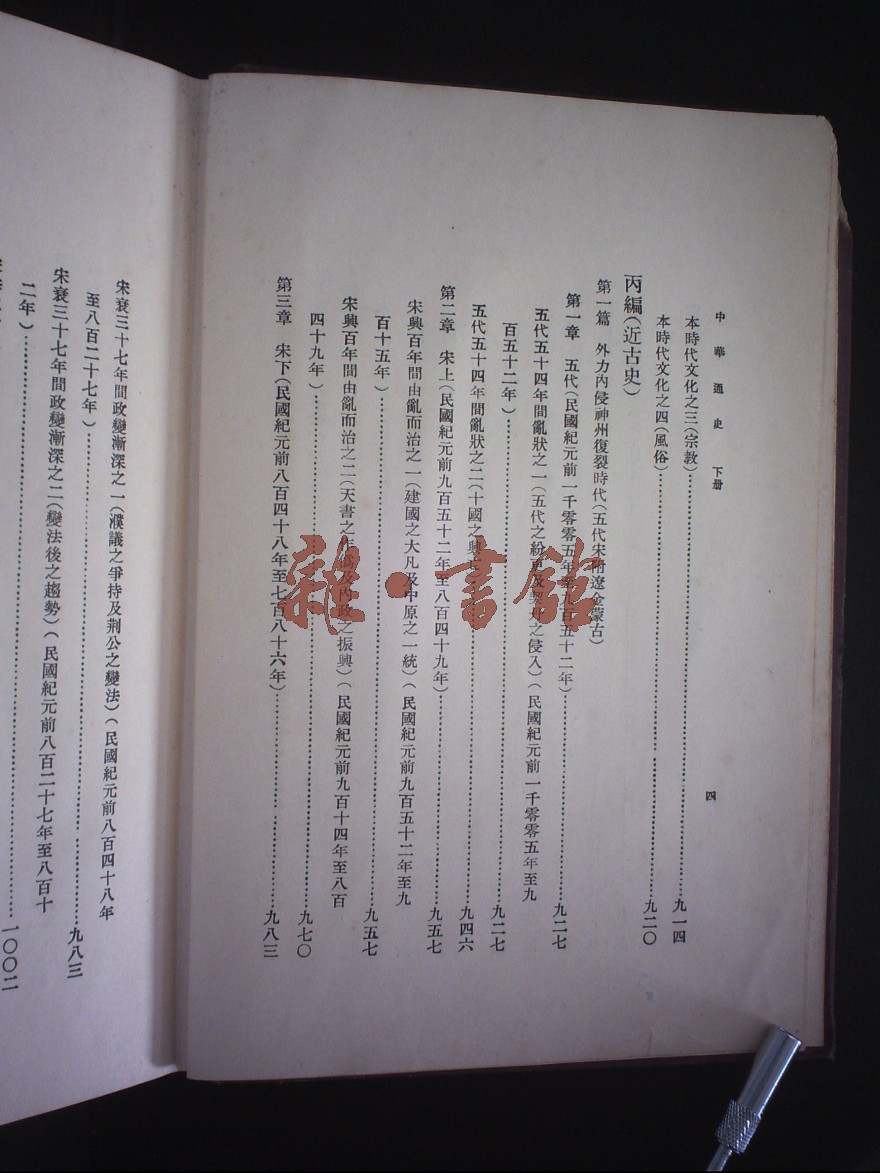 中華通史 下册
四
本時代文化之三(宗教)……九一四
本時代文化之四(風俗)……九二〇
丙編(近古史)
第一篇 外力內侵神州復裂時代(五代宋附遼金蒙古)
第一章 五代(民國紀元前一千零零五年至九百五十二年)……九二七
五代五十四年間亂狀之一(五代之紛更及契丹之侵入)(民國紀元前一千零零五年至九
百五十二年)……九二七
五代五十四年間亂狀之二(十國之興亡)……九四六
第二章 宋上(民國紀元前九百五十二年至八百四十九年)……九五七
宋興百年間由亂而治之一(建國之大凡及中原之一統)(民國紀元前九百五十二年至九
百十五年)……九五七
宋興百年間由亂而治之二(天書之作僞及內政之振興)(民國紀元前九百十四年至八百
四十九年)……九七〇
第三章 宋下(民國紀元前八百四十八年至七百八十六年)……九八三
宋衰三十七年間政變漸深之一(濮議之爭持及荆公之變法)(民國紀元前八百四十八年
至八百二十七年)……九八三
宋衰三十七年間政變漸深之二(變法後之趨勢)(民國紀元前八百二十七年至八百十
二年)……一〇〇二
雜·書館